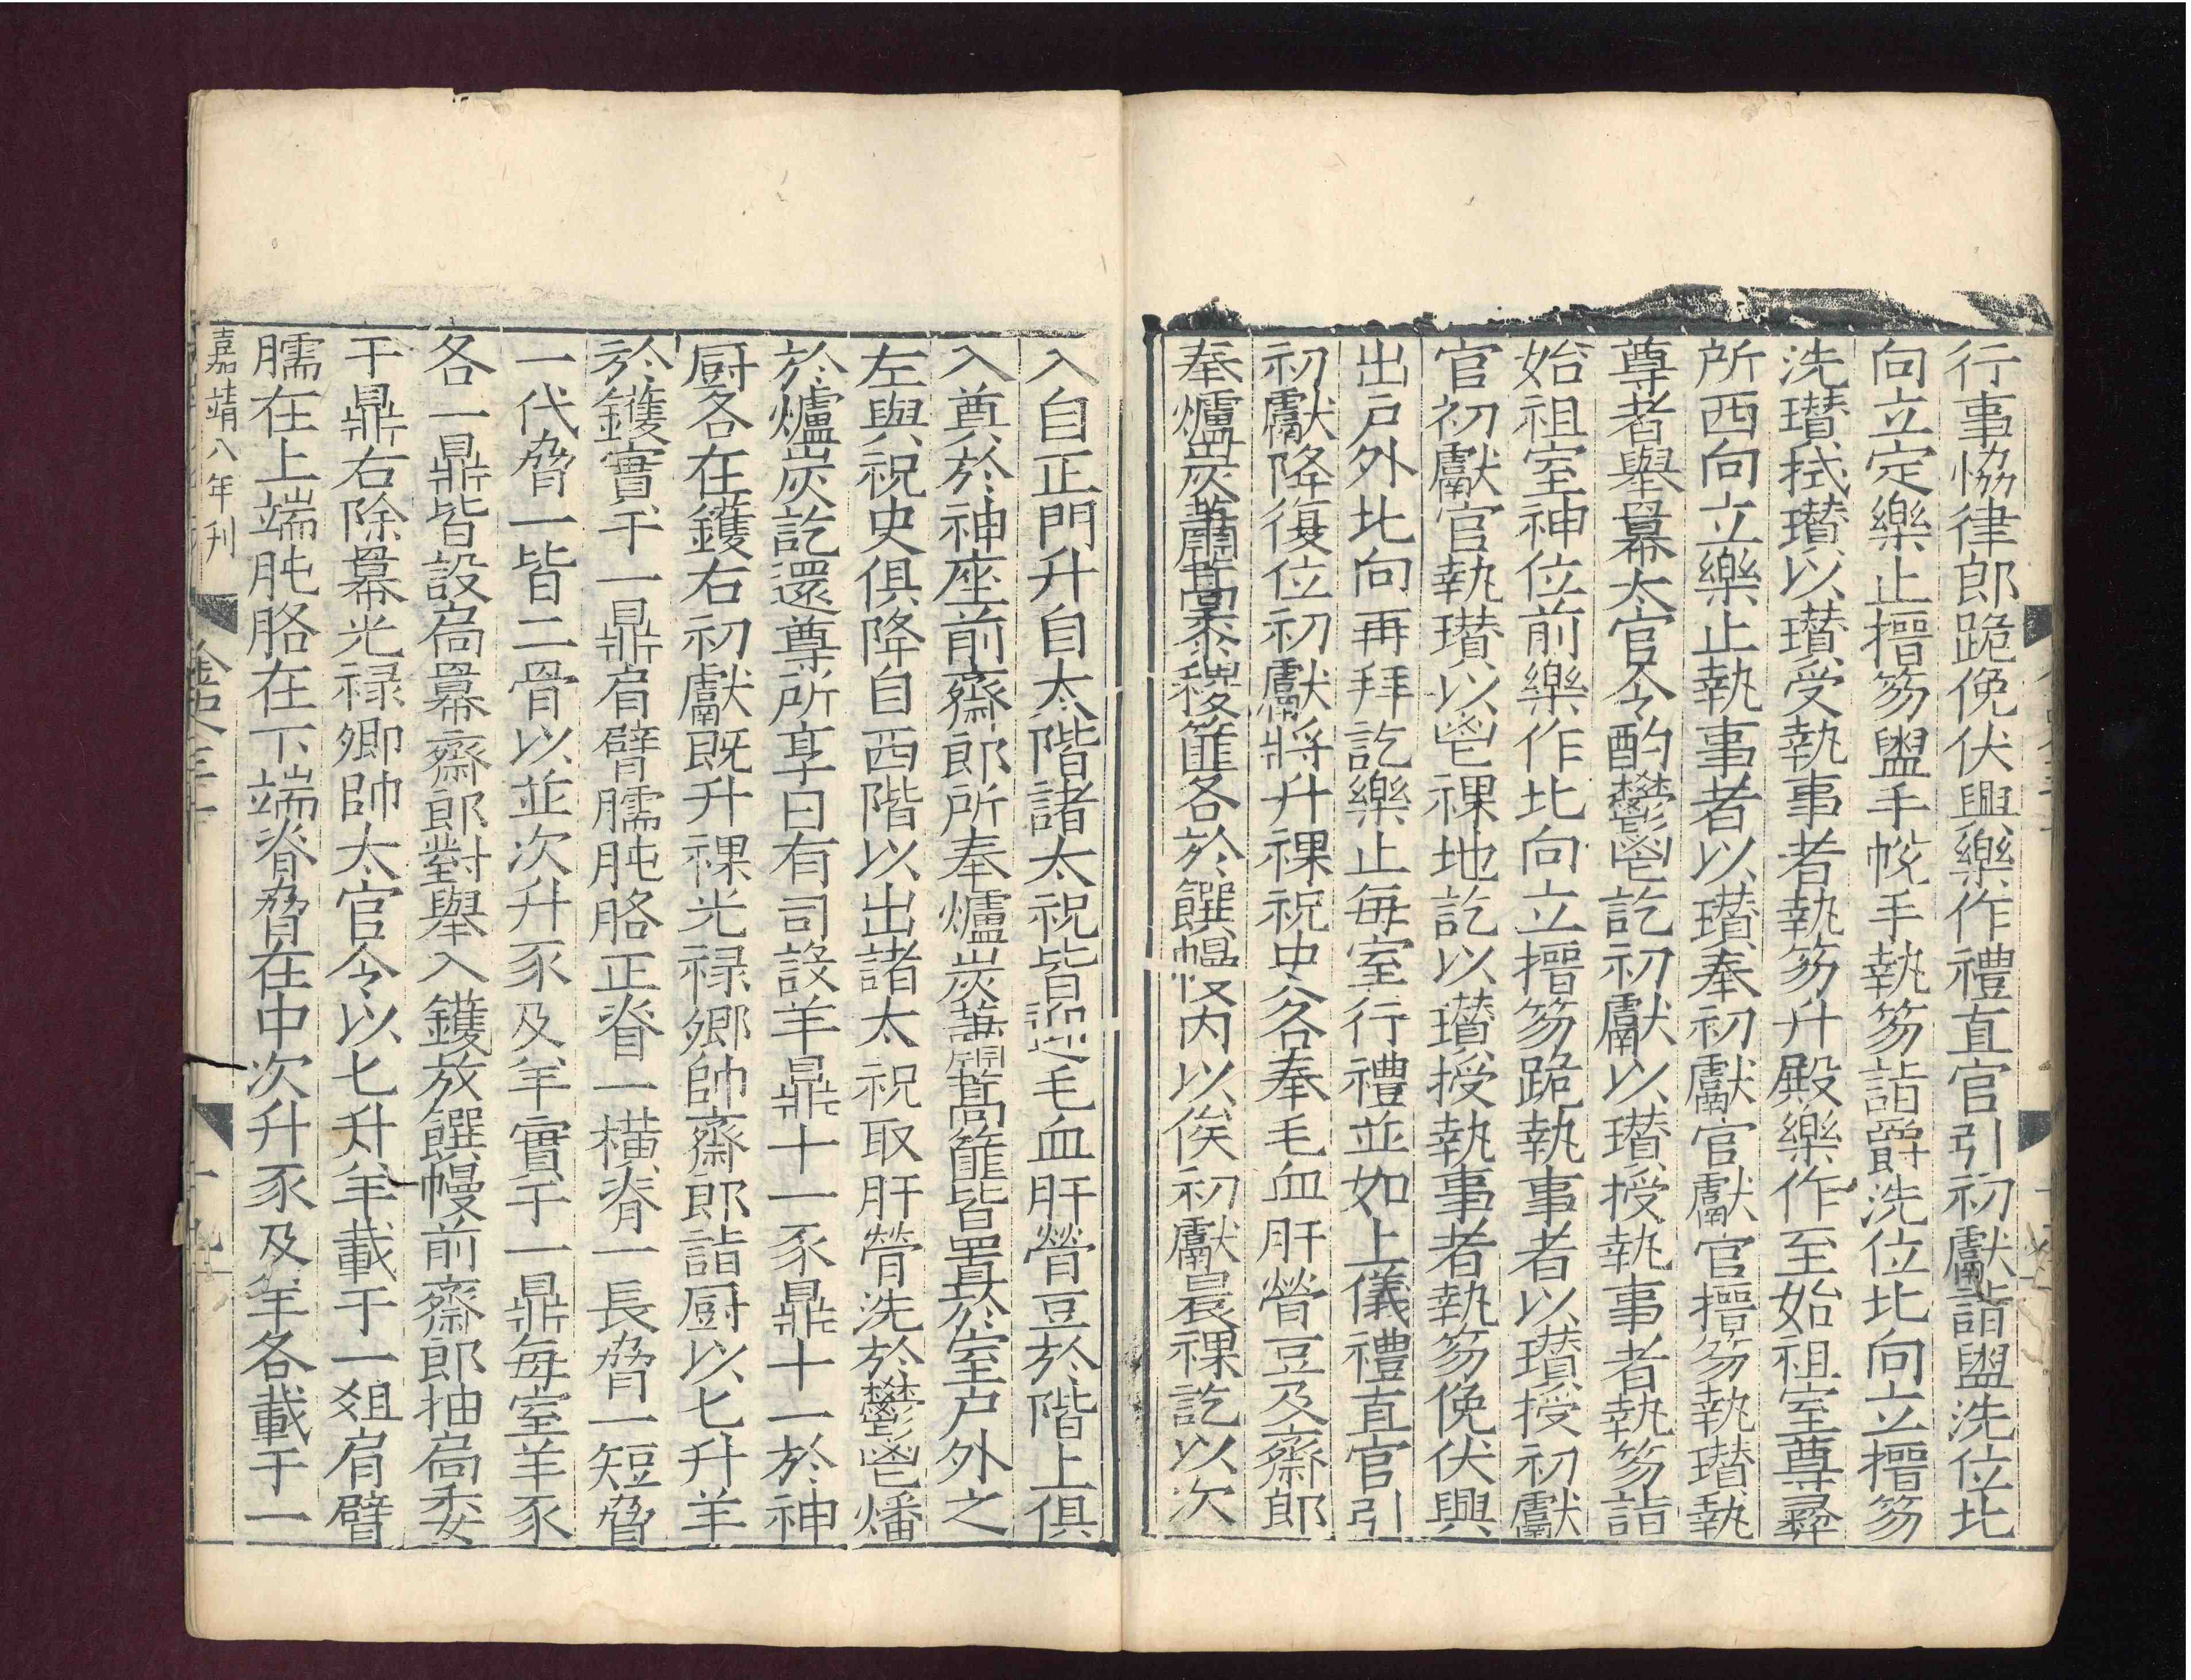 行事恊律郎跪俛伏興樂作禮直官引初獻詣盥洗位北
向立定樂止搢笏盥手帨手執笏詣爵洗位北向立搢笏
洗瓚拭瓚以瓚受執事者執笏升殿樂作至始祖室尊彛
所西向立樂止執事者以瓚奉初獻官獻官搢笏執瓚執
尊者舉冪太官令酌鬱鬯訖初獻以瓚授執事者執笏詣
始祖室神位前樂作北向立搢笏跪執事者以瓚授初獻
官初獻官執瓚以鬯祼地訖以瓚授執事者執笏俛伏興
出戶外北向再拜訖樂止每室行禮並如上儀禮直官引
初獻降復位初獻將升祼祝史各奉毛血肝膋豆及齋郎
奉爐炭蕭蒿黍稷篚各於饌幔內以俟初獻晨祼訖以次
入自正門升自太階諸太祝皆迎毛血肝膋豆於階上俱
入奠於神座前齋郎所奉爐炭蕭蒿篚皆置於室戶外之
左與祝史俱降自西階以出諸太祝取肝膋洗於鬱鬯燔
於爐炭訖還尊所享日有司設羊鼎十一豕鼎十一於神
厨各在鑊右初獻既升祼光禄卿帥齋郎詣厨以匕升羊
於鑊實于一鼎肩臂臑肫胳正脊一横脊一長脅一短脅
一代脅一皆二骨以並次升豕及羊實于一鼎每室羊豕
各一鼎皆設扃冪齋郎對舉入鑊放饌幔前齋郎抽扃委
于鼎右除冪光禄卿帥太官令以匕升羊載于一俎肩臂
臑在上端肫胳在下端脊脅在中次升豕及羊各載于一
嘉靖八年刊